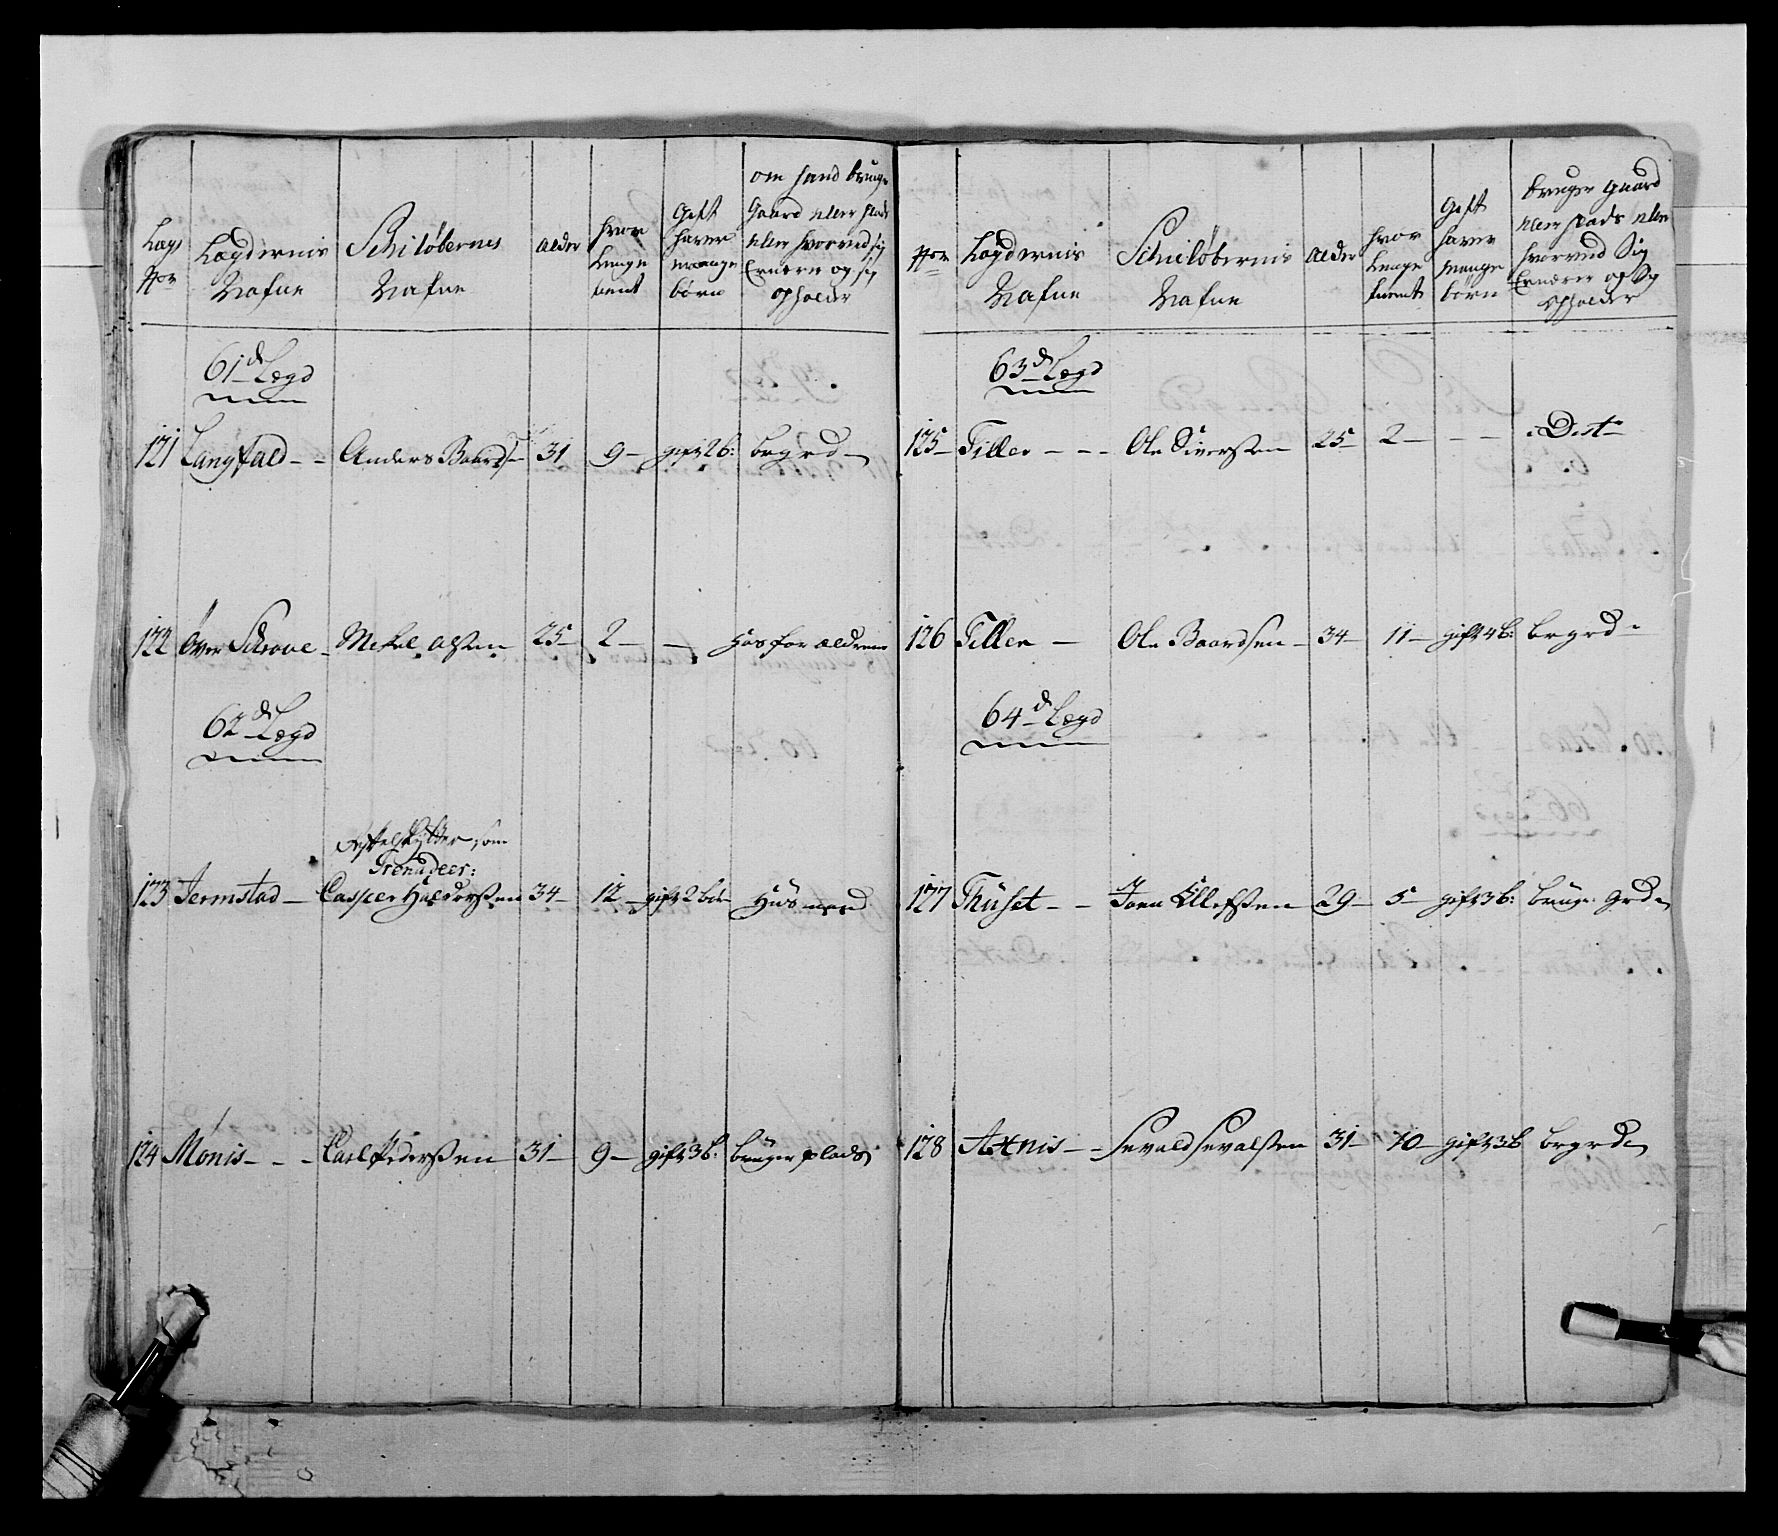 Lægs Nor Lægdernis Nafne Schiløbernes Nafne alder hvor lenge tient Gift haver mange børn om hand bruge Gaard eller plads eller hvorved sig Ernere og sig opholder
61de Lægd
121 Langfald - - Anders Baards 31 9 - gift 2 b: brgrd
122 over Schrove - Mekel olsen 25 - 2 - - hos forældrene
62de Lægd
som
Grenadeer:
123 Jermstad - Casper Haldorsen 34 - 12 - gift 2 bør Husmand
124 Mønis - - - Carl Pedersen 31 - 9 - gift 3 b: bruger plads
Nor Lægdernis Nafne Schiløbernis Nafne alder hvor lenge tient Gift haver mange børn bruger gaard eller plads eller hvorved Sig Ernærer og Sig opholder
63de Lægd
125 - Tiller - - - Ole Siversen 25 - 2 - - - Dito
126 Tiller - Ole Baardsen - 34 - 11 - gift 4 b: brgrd
64de Lægd
127 Thuset - - Joen Ellefsen 29 - 5 - gift 3 b: bruger grd
128 Axnis - - Sevald Sevalsen 31 - 10 - gift 3 b brgrd